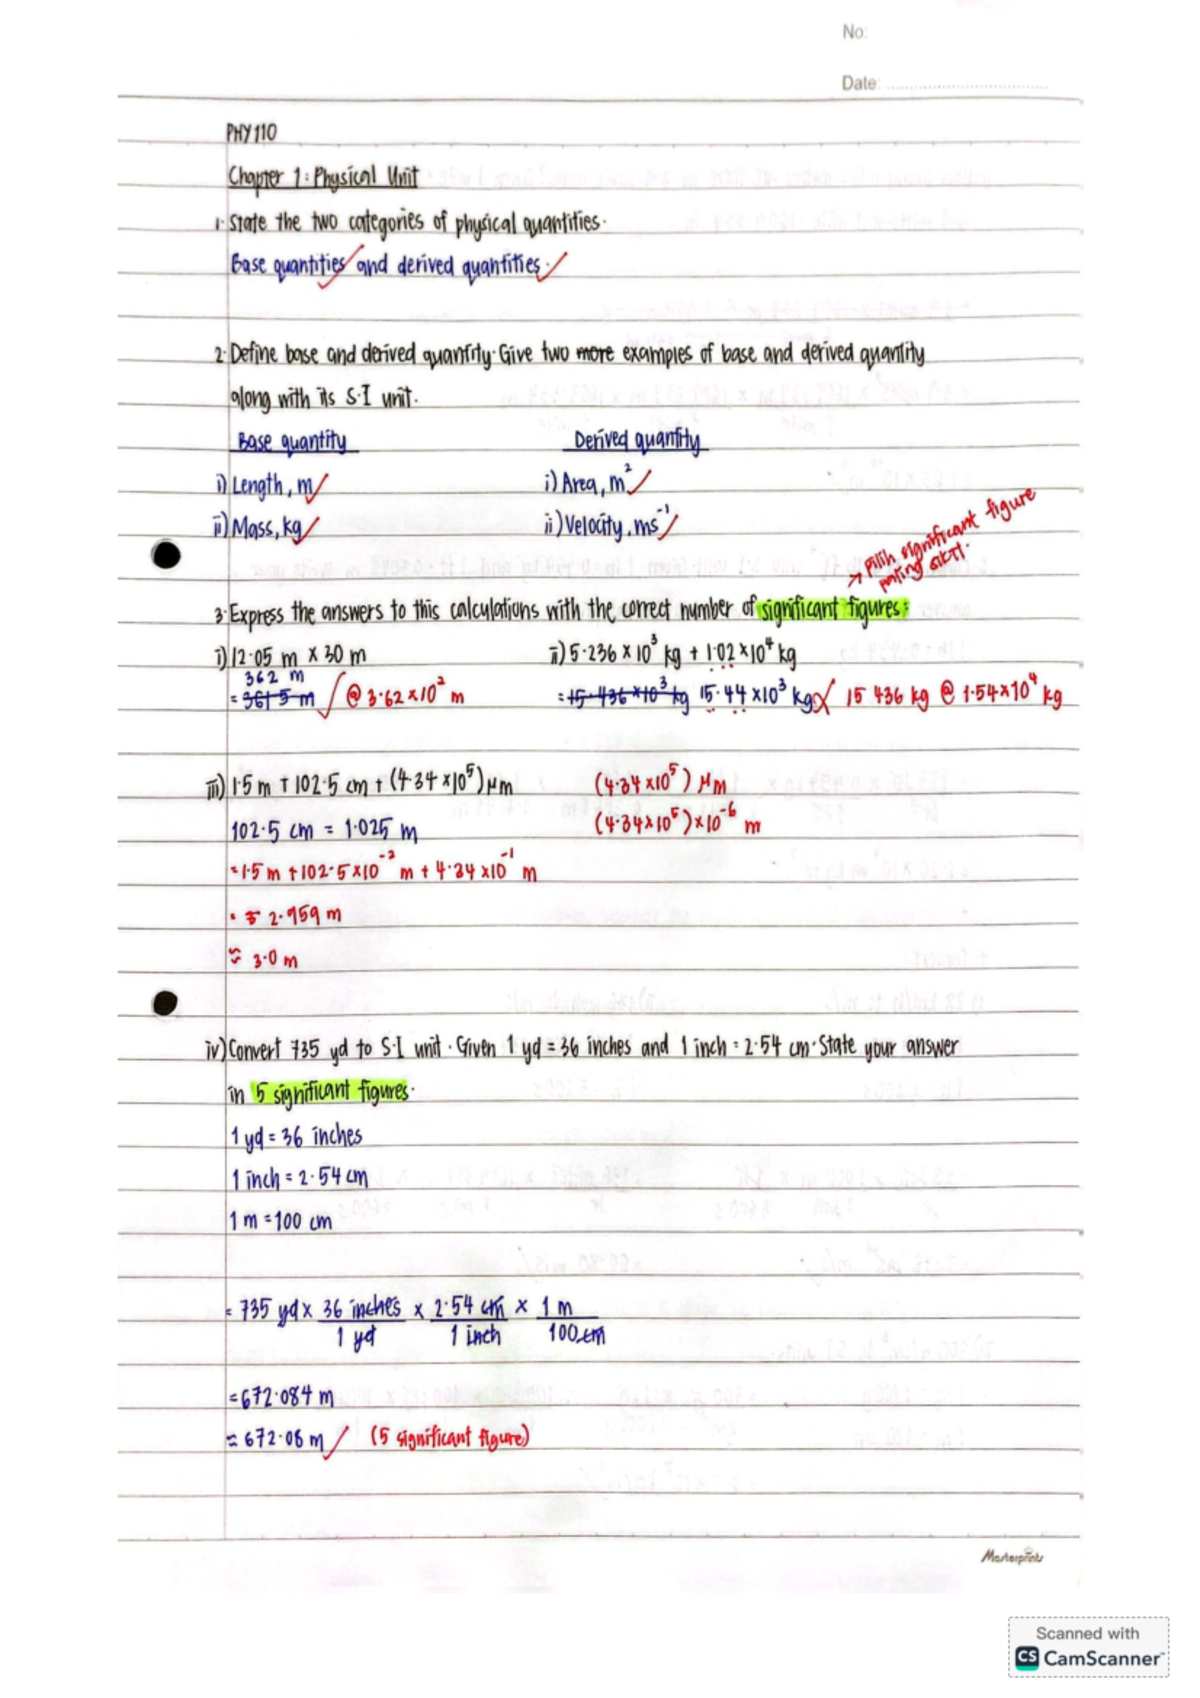 No:
Date:
PHY110
Chapter 1: Physical Unit
1. State the two categories of physical quantities.
Base quantities and derived quantities.
2. Define base and derived quantity. Give two more examples of base and derived quantity
along with its S.I unit.
Base quantity Derived quantity
i) Length, m i) Area, m²
ii) Mass, kg ii) Velocity, ms⁻¹
→ Pilih significant figure
paling sikit.
3. Express the answers to this calculations with the correct number of significant figures:
i) 12.05 m × 30 m ii) 5.236 × 10³ kg + 1.02 × 10⁴ kg
362 m
= 361.5 m @ 3.62 × 10² m = 15.436 × 10³ kg 15.44 × 10³ kg 15 436 kg @ 1.54 × 10⁴ kg
iii) 1.5 m + 102.5 cm + (4.34 × 10⁵) μm (4.34 × 10⁵) μm
102.5 cm = 1.025 m (4.34 × 10⁵) × 10⁻⁶ m
= 1.5 m + 102.5 × 10⁻² m + 4.34 × 10⁻¹ m
= 2.959 m
≈ 3.0 m
iv) Convert 735 yd to S.I unit. Given 1 yd = 36 inches and 1 inch = 2.54 cm. State your answer
in 5 significant figures.
1 yd = 36 inches
1 inch = 2.54 cm
1 m = 100 cm
= 735 yd × 36 inches × 2.54 cm × 1 m
1 yd 1 inch 100 cm
= 672.084 m
≈ 672.08 m (5 significant figure)
Masterprints
Scanned with
CS CamScanner